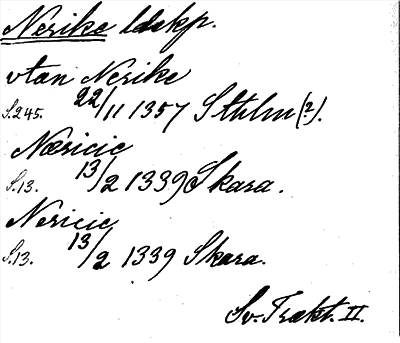 Nerike ldskp.
vtan Nerike
S.245. 22/11 1357 Sthlm(?).
Næricic
S.13. 13/2 1339 Skara.
Nericic
S.13. 13/2 1339 Skara.
Sv. Trakt. II.